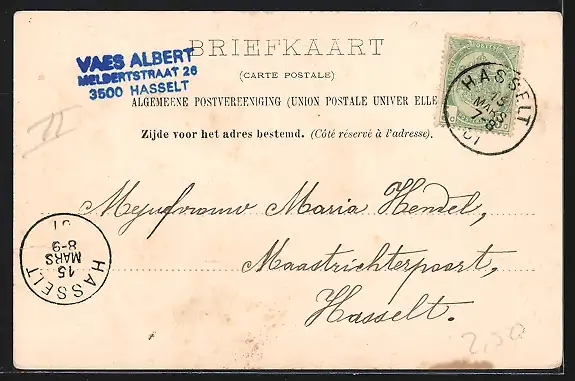 VAES ALBERT
MELDERTSTRAAT 26
3500 HASSELT
BRIEFKAART
(CARTE POSTALE)
ALGEMEENE POSTVEREENIGING (UNION POSTALE UNIVER ELLE
Zijde voor het adres bestemd. (Côté réservé à l'adresse).
HASSELT
15
MARS
7-8
01
II
Mejufvrouw Maria Hendel,
Maastrichterpoort,
Hasselt.
HASSELT
15
MARS
8-9
01
2,50